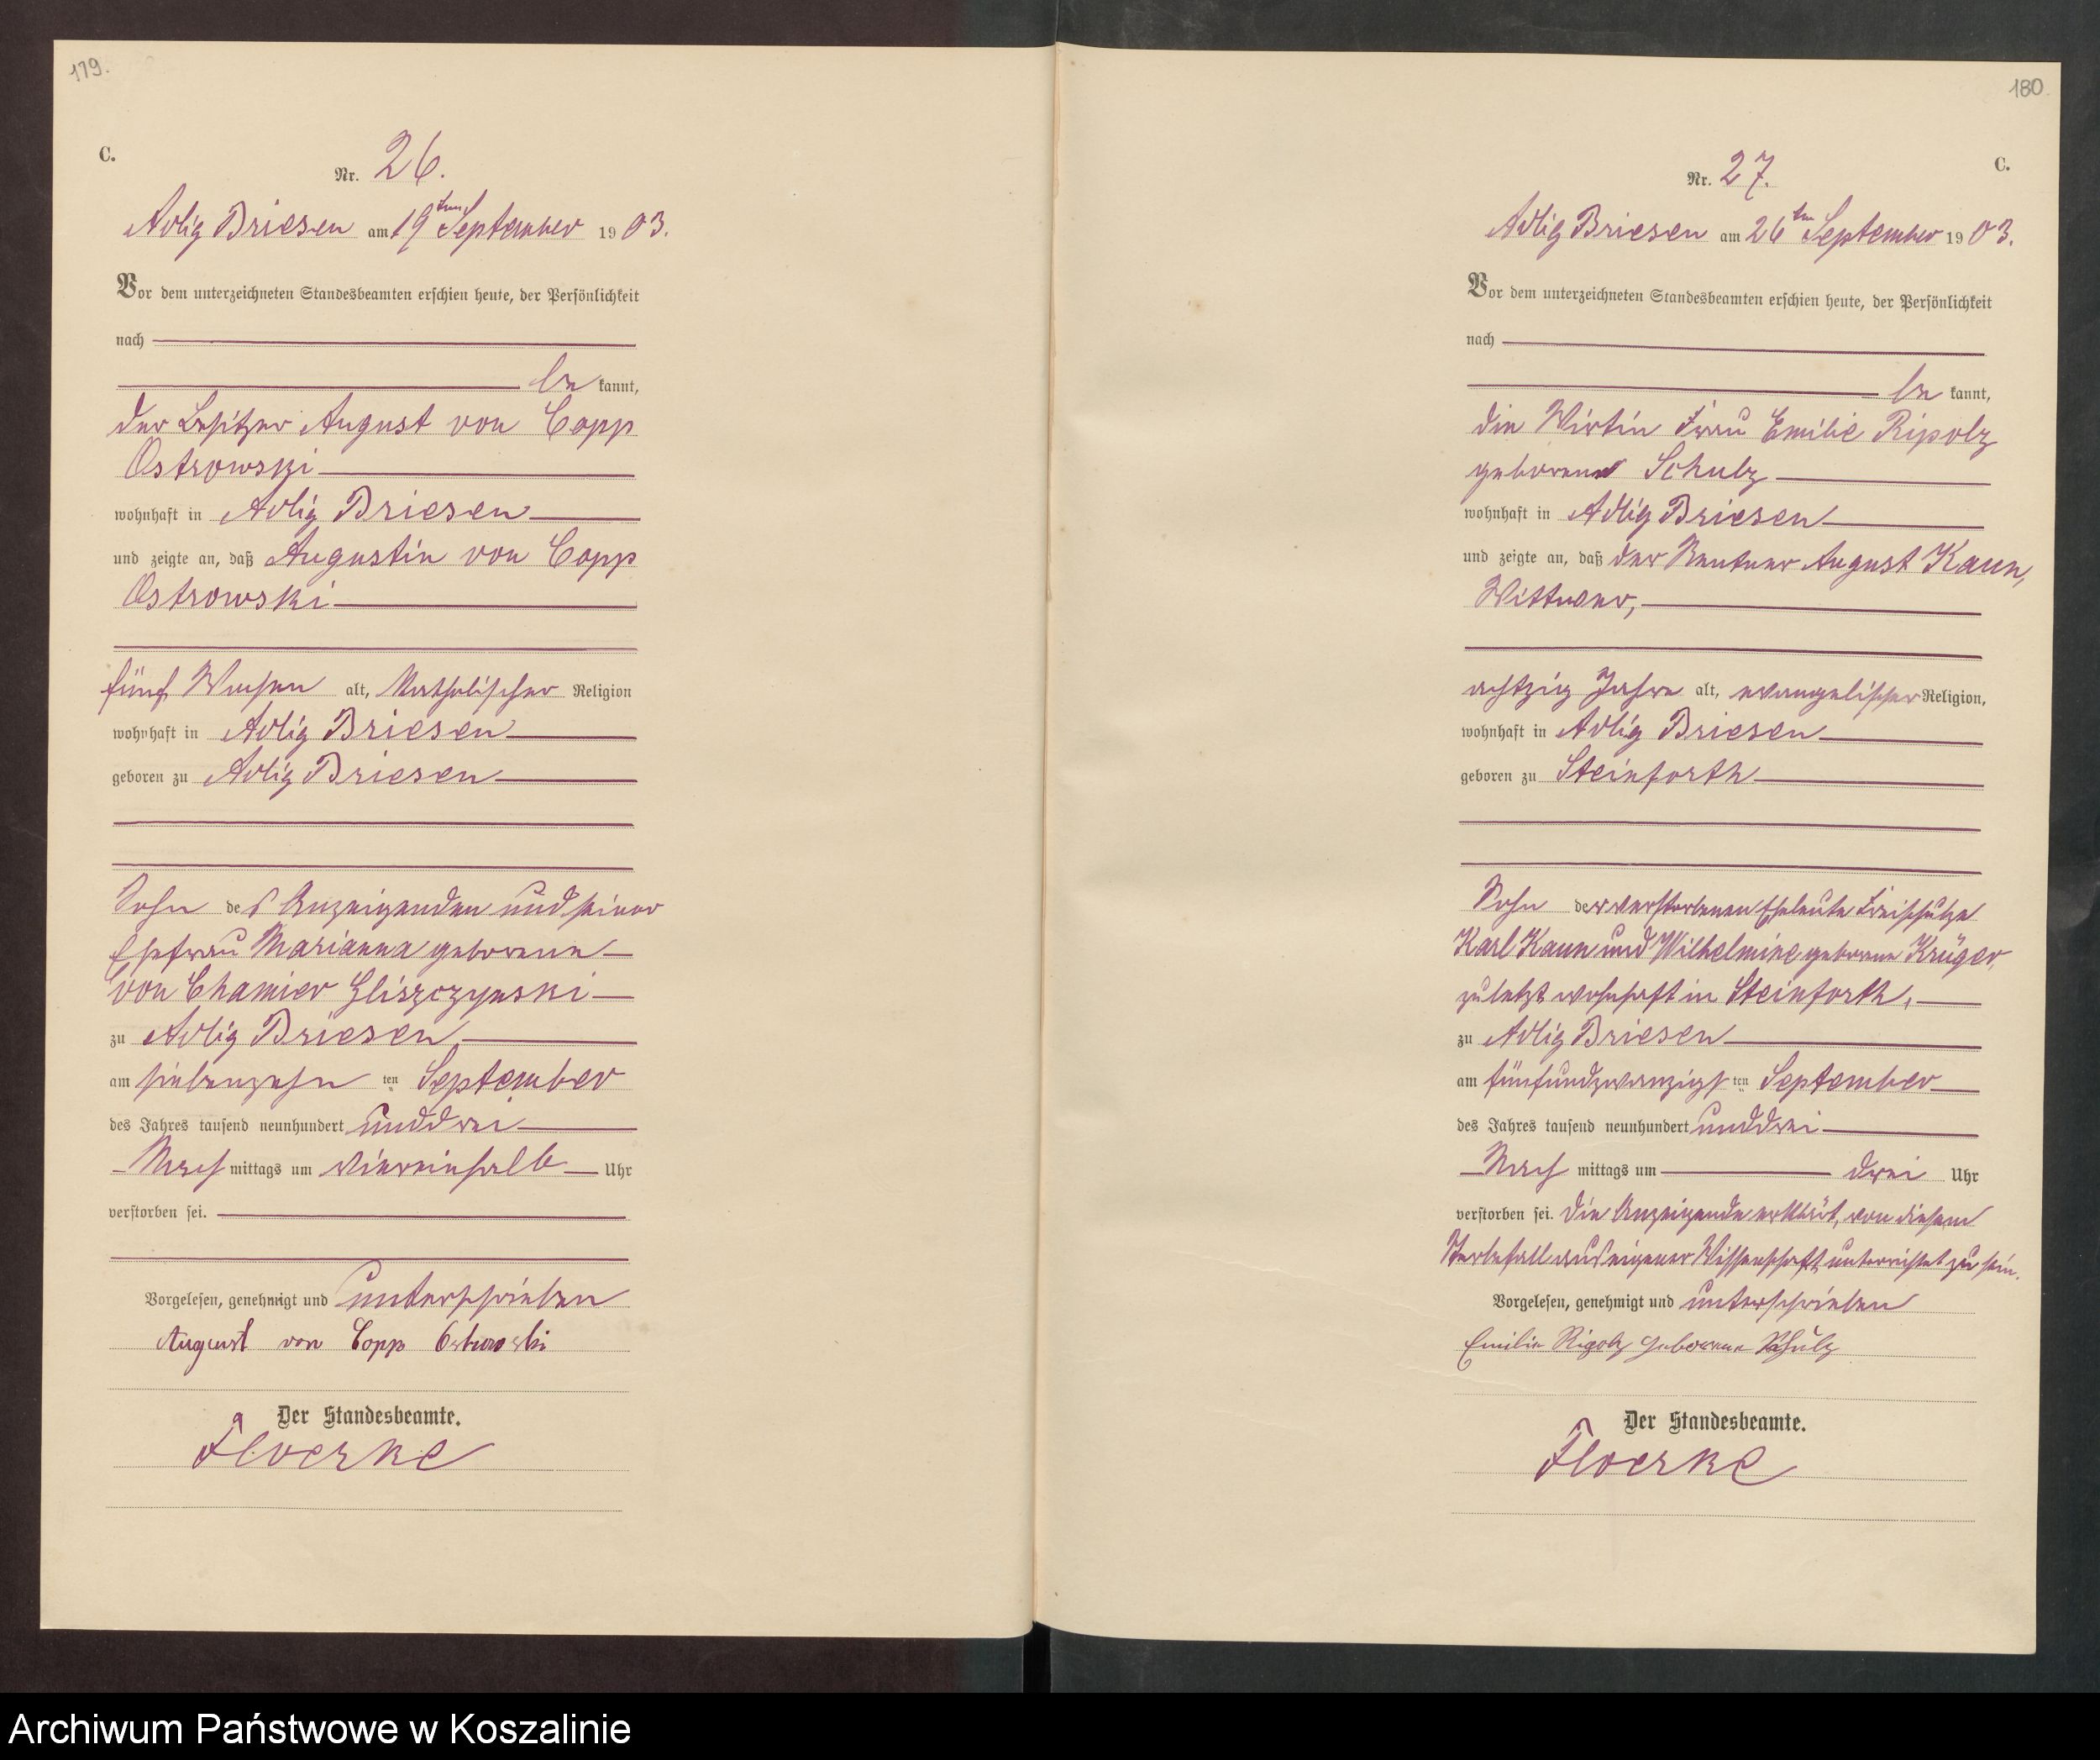 179.
C.
Nr. 26.
Adlig Briesen am 19ten September 1903.
Vor dem unterzeichneten Standesbeamten erschien heute, der Persönlichkeit
nach
bekannt,
der Besitzer August von Copp
Ostrowski
wohnhaft in Adlig Briesen
und zeigte an, daß Augustin von Copp
Ostrowski
fünf Wochen alt, katholischer Religion
wohnhaft in Adlig Briesen
geboren zu Adlig Briesen
Sohn des Anzeigenden und seiner
Ehefrau Marianna geborene
von Chamier Gliszczynski
zu Adlig Briesen,
am siebenzehnten September
des Jahres tausend neunhundert unddrei
Nachmittags um viereinhalb Uhr
verstorben sei.
Vorgelesen, genehmigt und unterschrieben
August von Copp Ostrowski
Der Standesbeamte.
Floerke
180
C.
Nr. 27.
Adlig Briesen am 26ten September 1903.
Vor dem unterzeichneten Standesbeamten erschien heute, der Persönlichkeit
nach
bekannt,
die Wirtin Frau Emilie Ripolz
geborene Schulz
wohnhaft in Adlig Briesen
und zeigte an, daß der Rentner August Kaun,
Wittwer,
achtzig Jahre alt, evangelischer Religion,
wohnhaft in Adlig Briesen
geboren zu Steinforth
Sohn der verstorbenen Eheleute Freischulze
Karl Kaun und Wilhelmine geborene Krüger,
zuletzt wohnhaft in Steinforth,
zu Adlig Briesen
am fünfundzwanzigsten September
des Jahres tausend neunhundert unddrei
Nachmittags um drei Uhr
verstorben sei. Die Anzeigende erklärt, von diesem
Sterbefall aus eigener Wissenschaft unterrichtet zu sein.
Vorgelesen, genehmigt und unterschrieben
Emilie Ripolz geborene Schulz
Der Standesbeamte.
Floerke
Archiwum Państwowe w Koszalinie